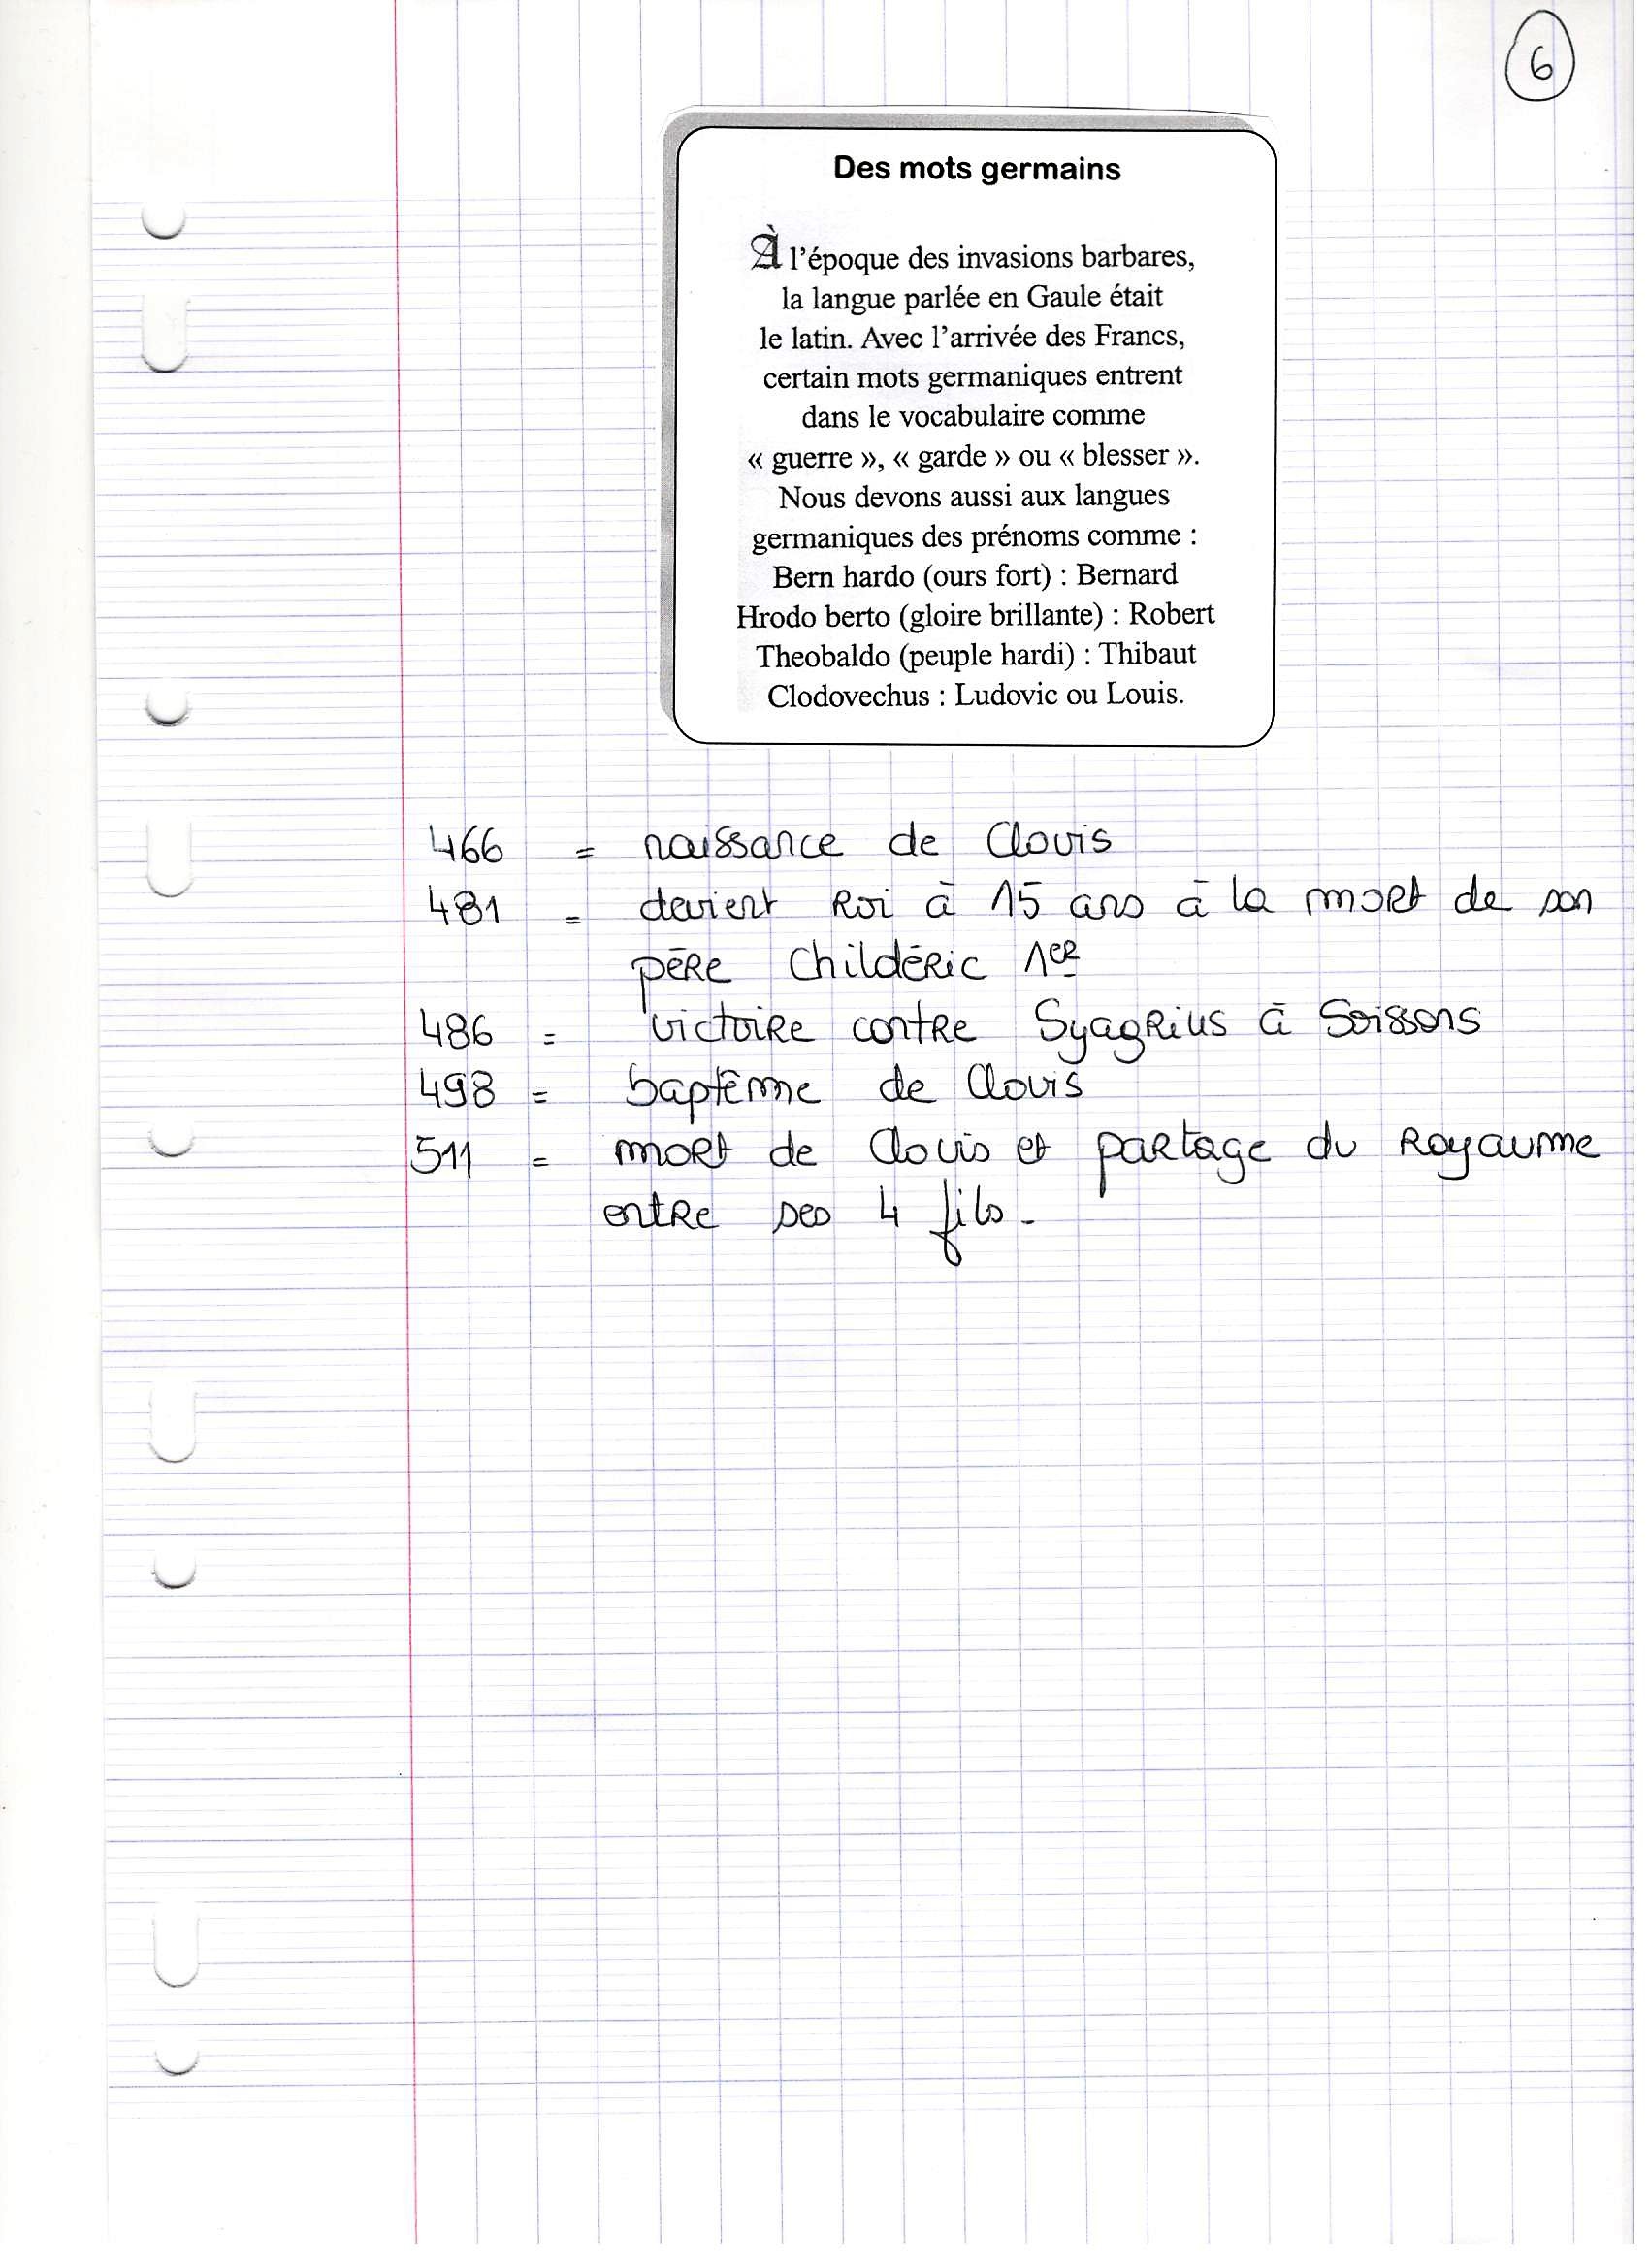 6
Des mots germains
À l'époque des invasions barbares,
la langue parlée en Gaule était
le latin. Avec l'arrivée des Francs,
certain mots germaniques entrent
dans le vocabulaire comme
« guerre », « garde » ou « blesser ».
Nous devons aussi aux langues
germaniques des prénoms comme :
Bern hardo (ours fort) : Bernard
Hrodo berto (gloire brillante) : Robert
Theobaldo (peuple hardi) : Thibaut
Clodovechus : Ludovic ou Louis.
466 = naissance de Clovis
481 = devient Roi à 15 ans à la mort de son
père Childéric 1er
486 = victoire contre Syagrius à Soissons
498 = baptême de Clovis
511 = mort de Clovis et partage du Royaume
entre ses 4 fils.